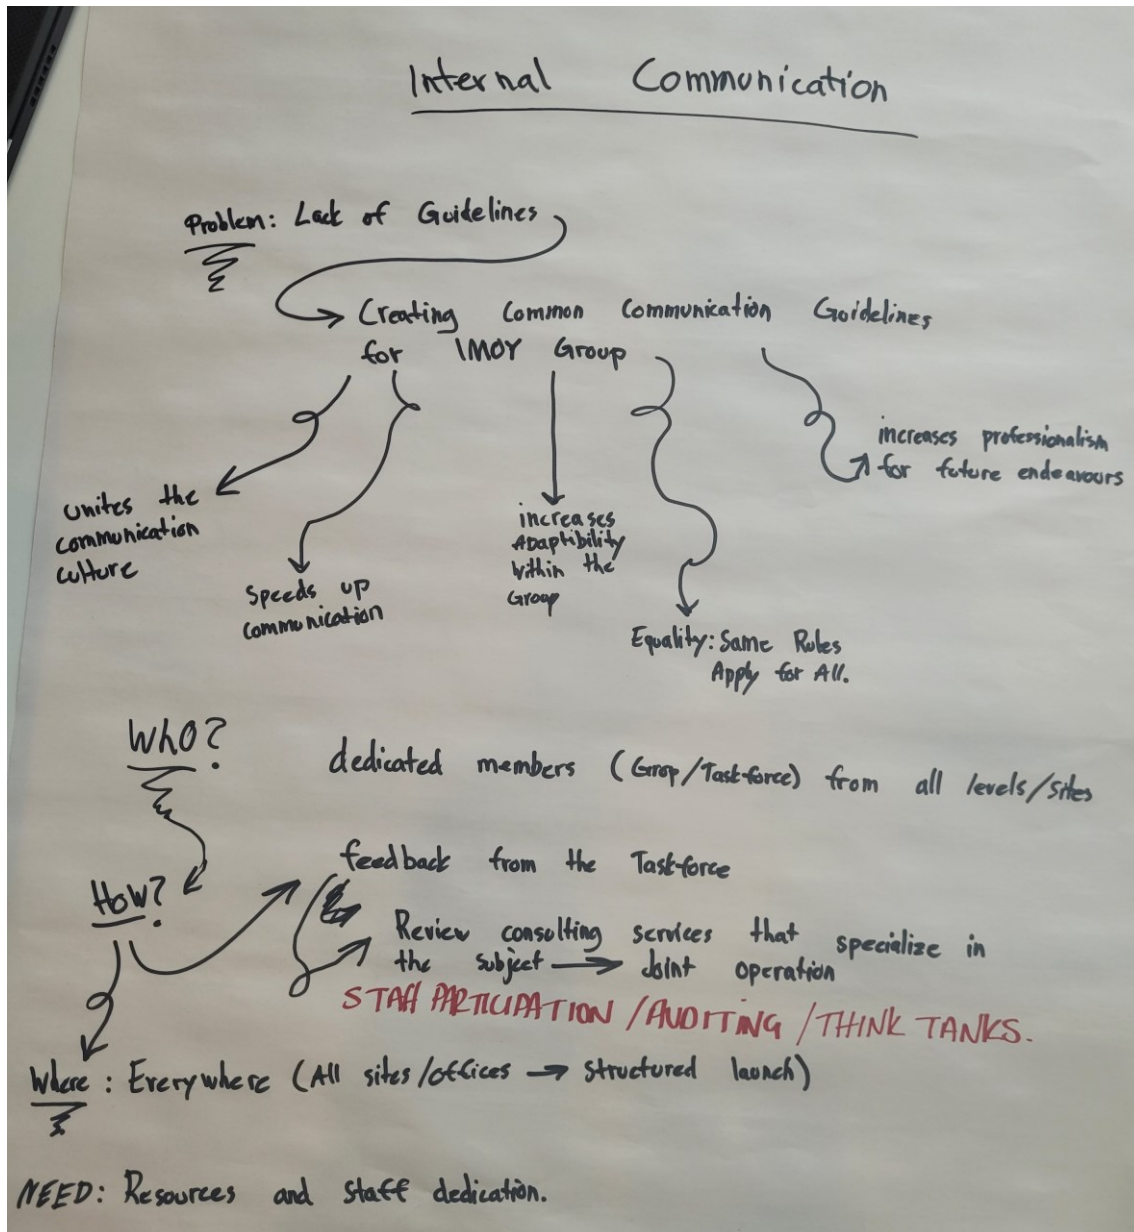 Internal Communication
Problem: Lack of Guidelines
Creating Common Communication Guidelines
for IMOY Group
increases professionalism
for future endeavours
unites the
communication
culture
Speeds up
communication
increases
Adaptibility
within the
Group
Equality: Same Rules
Apply for All.
WhO?
dedicated members (Grop/Task-force) from all levels/sites
How?
feedback from the Task-force
Review consulting services that specialize in
the subject → Joint operation
STAFF PARTICIPATION / AUDITING / THINK TANKS.
Where: Everywhere (All sites/offices → structured launch)
NEED: Resources and staff dedication.